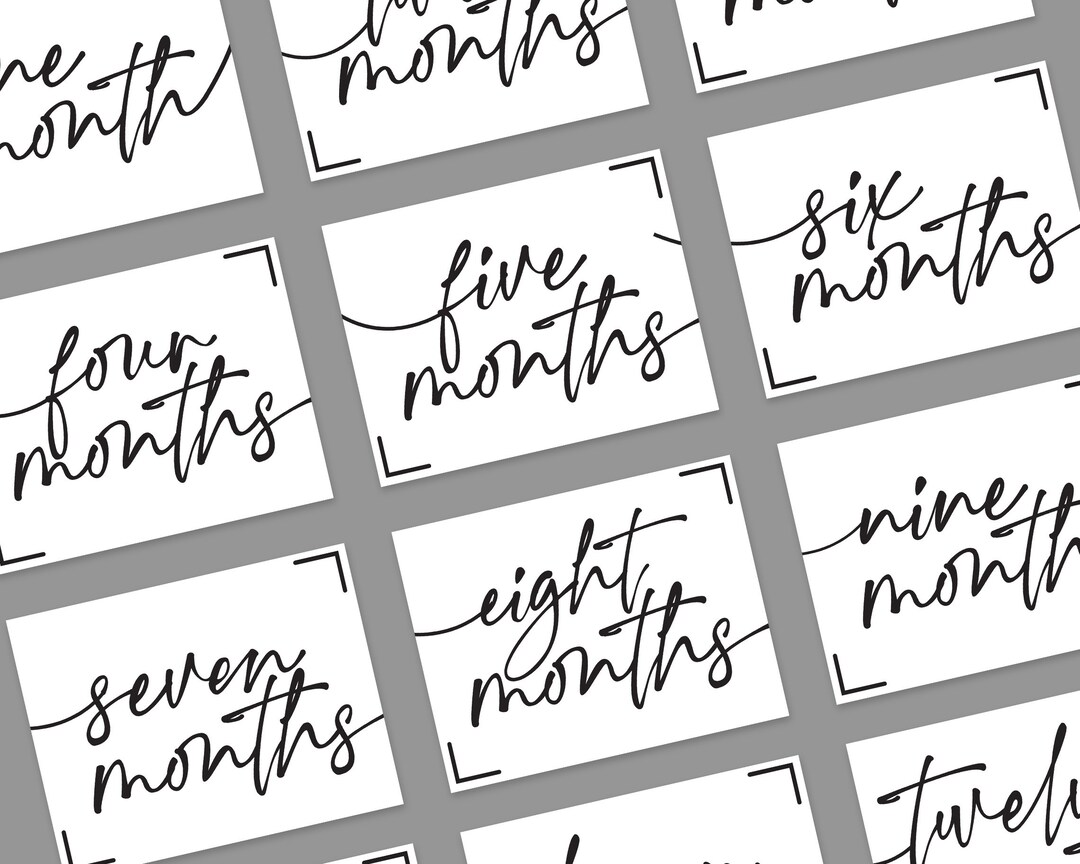 month
months
four
months
five
months
six
months
seven
months
eight
months
nine